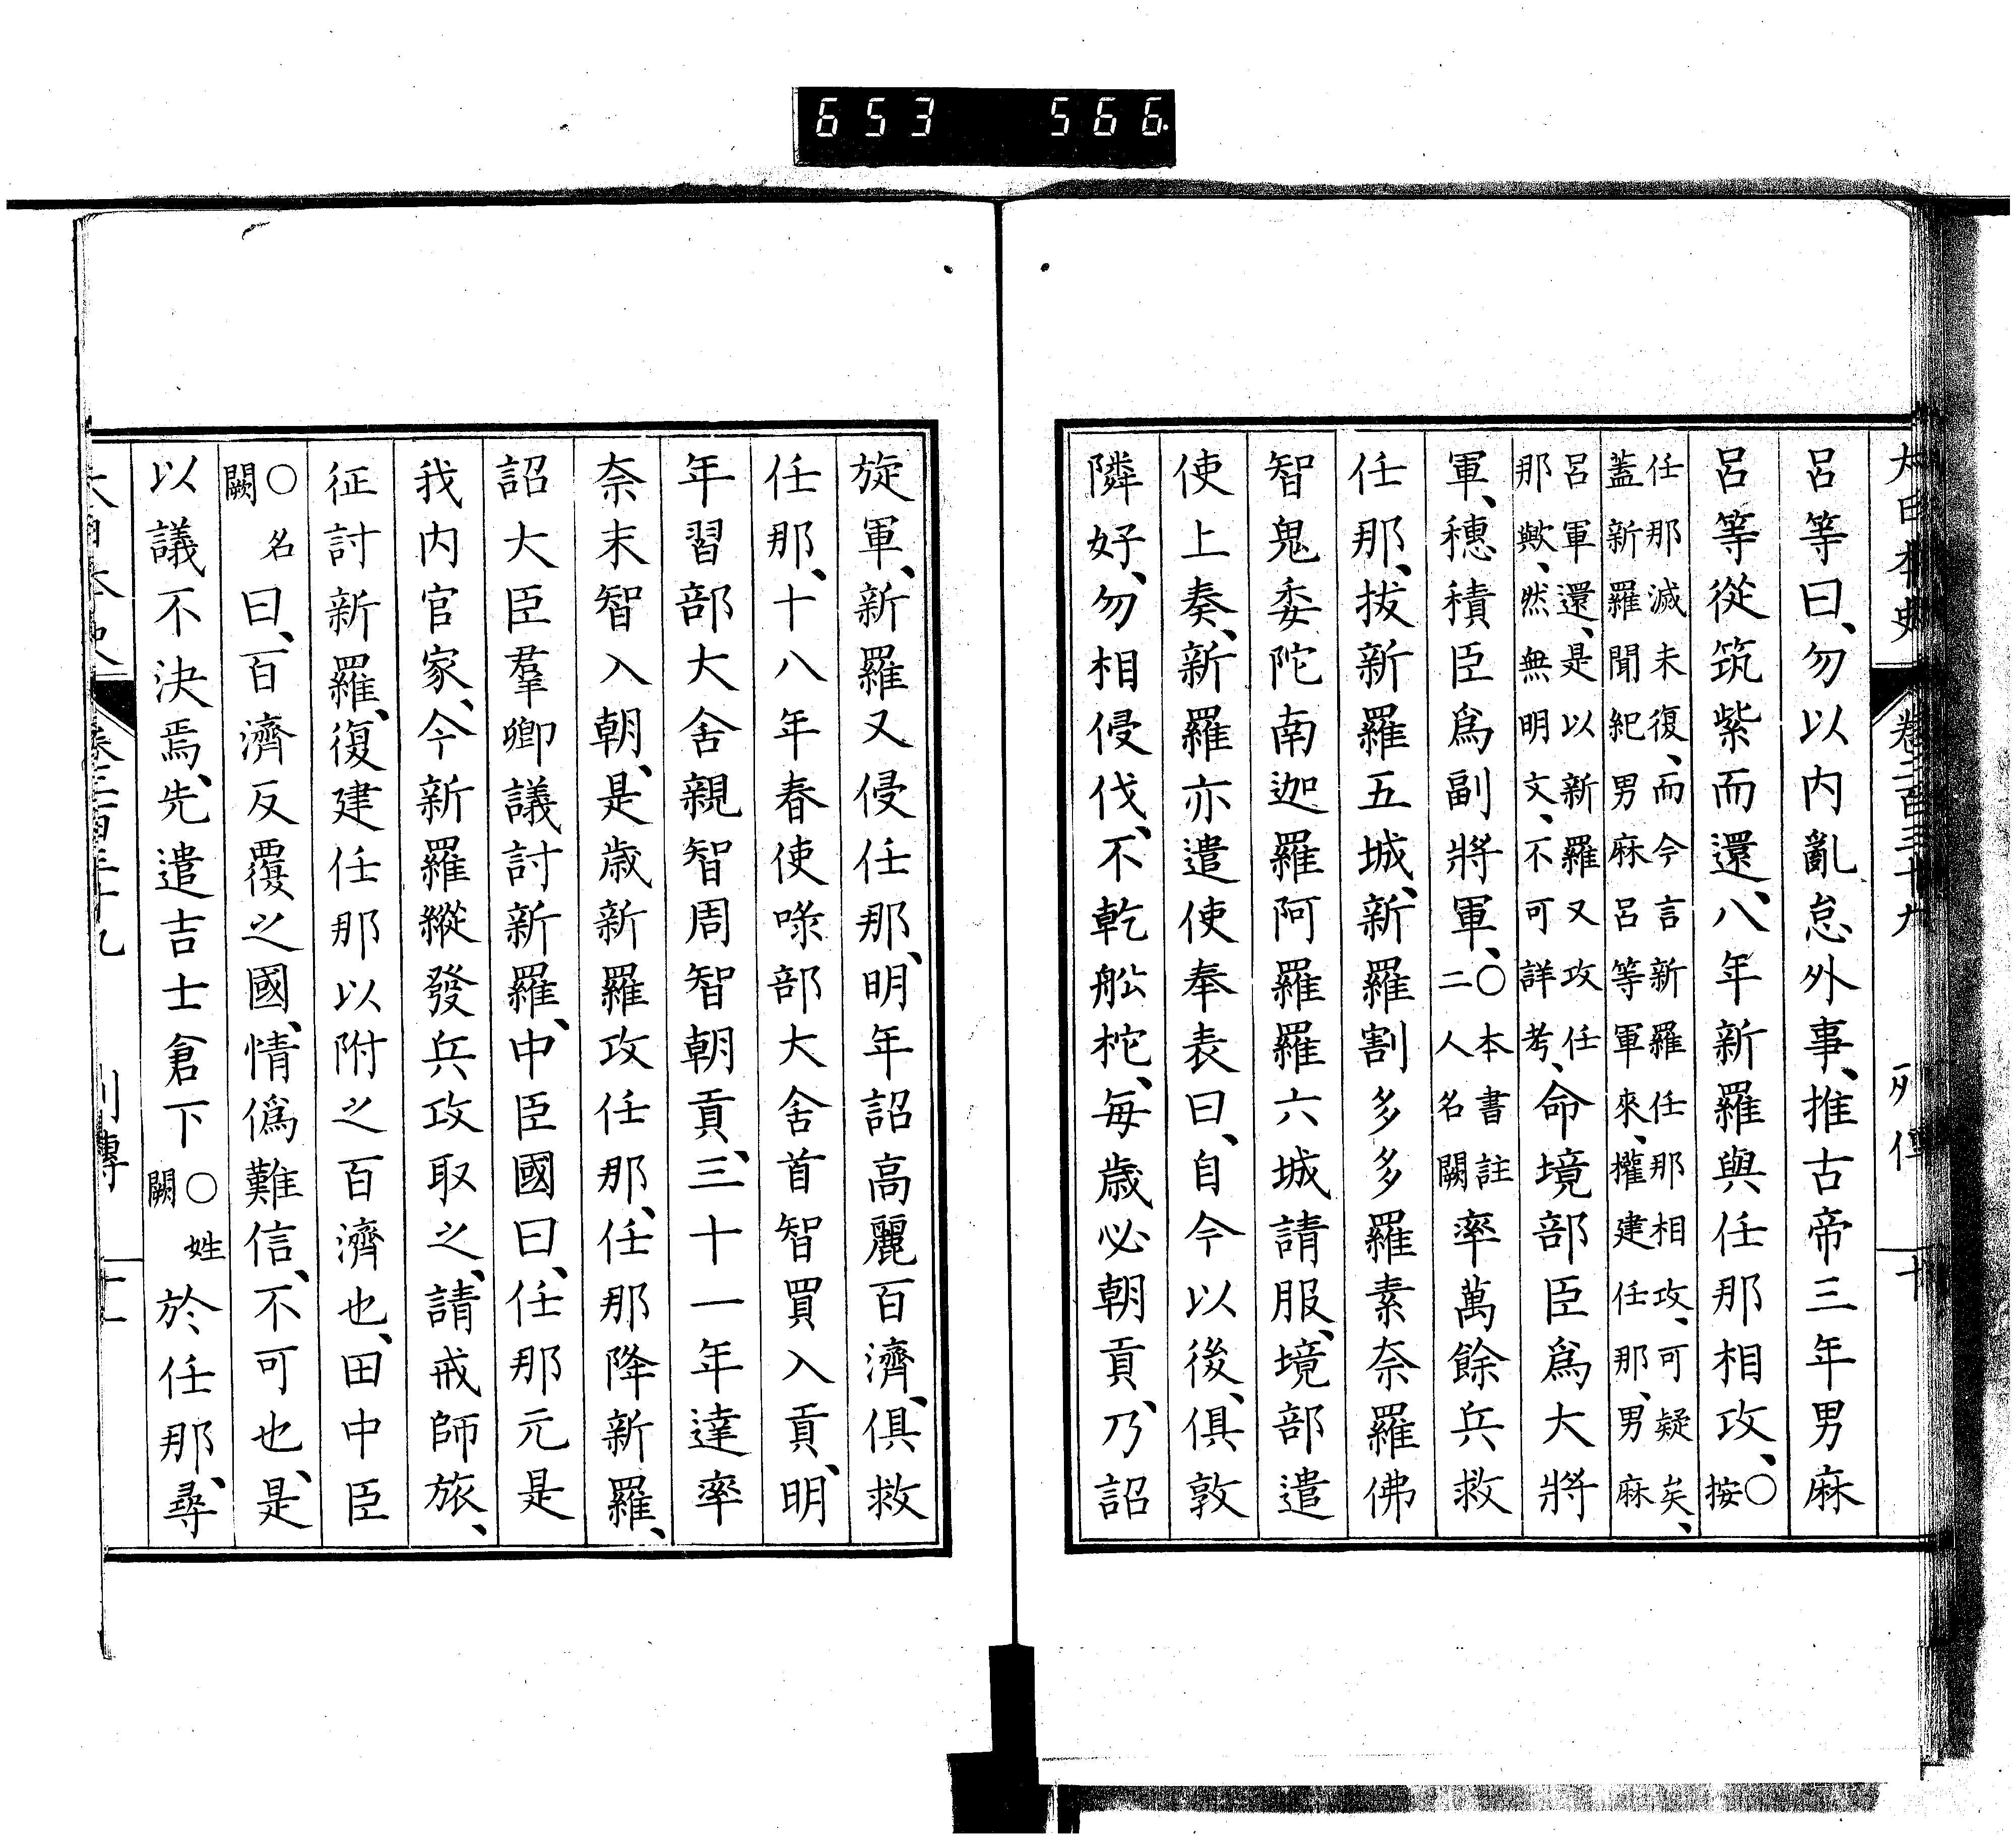 653 566
大日本史 卷二百三十九 列傳 十
呂等曰、勿以內亂怠外事、推古帝三年男麻
呂等從筑紫而還、八年新羅與任那相攻、○按
任那滅未復、而今言新羅任那相攻、可疑矣、
蓋新羅聞紀男麻呂等軍來、攉建任那、男麻
呂軍還、是以新羅又攻任
那歟、然無明文、不可詳考、命境部臣爲大將
軍、穗積臣爲副將軍、○本書註二人名闕率萬餘兵救
任那、拔新羅五城、新羅割多多羅素奈羅佛
智鬼委陀南迦羅阿羅羅六城請服、境部遣
使上奏、新羅亦遣使奉表曰、自今以後、俱敦
隣好、勿相侵伐、不乾船柁、每歲必朝貢、乃詔
旋軍、新羅又侵任那、明年詔高麗百濟、俱救
任那、十八年春使㖨部大舍首智買入貢、明
年習部大舍親智周智朝貢、三十一年達率
奈末智入朝、是歲新羅攻任那、任那降新羅、
詔大臣羣卿議討新羅、中臣國曰、任那元是
我內官家、今新羅縱發兵攻取之、請戒師旅、
征討新羅、復建任那以附之百濟也、田中臣
○名闕曰、百濟反覆之國、情僞難信、不可也、是
以議不決焉、先遣吉士倉下○姓闕於任那、尋
大日本史 卷二百三十九 列傳